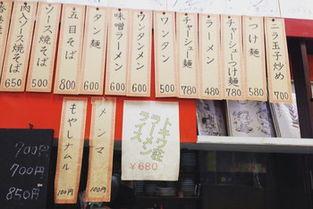 ニラ玉子炒め
700
つけ麺
580
チャーシューつけ麺
780
ラーメン
480
チャーシュー麺
780
ワンタン
500
ワンタンメン
600
味噌ラーメン
600
タン麺
600
五目そば
800
ソース焼そば
500
肉入ソース焼そば
650
トキワ荘
ラーメン
ライス
¥680
メンマ
100円
もやしナムル
100円
700円
700円
850円